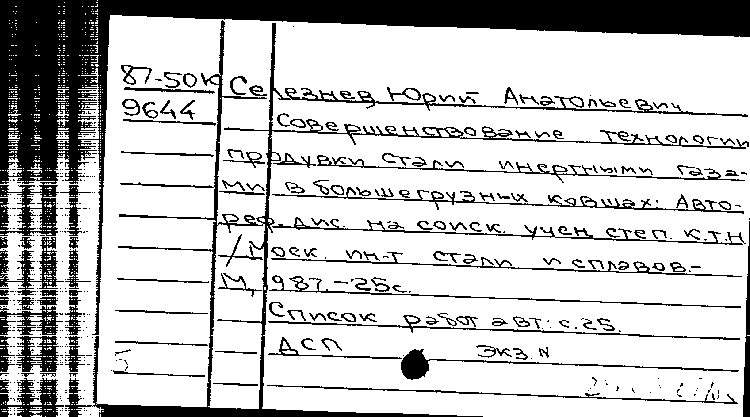 87-50к Селезнев Юрий Анатольевич
9644 Совершенствование технологии
продувки стали инертными газа-
ми в большегрузных ковшах: Авто-
реф. дис. на соиск. учен. степ. к.т.н.
/Моск. ин-т стали и сплавов.-
М., 1987.-25с.
Список работ авт.: с.25.
ДСП экз. N
5